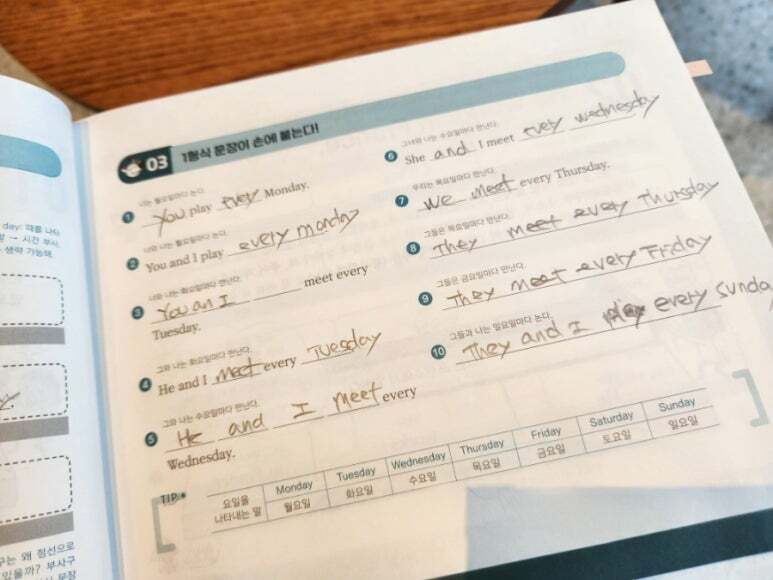 03 1형식 문장이 손에 붙는다!
나는 월요일마다 논다.
1 You play every Monday.
너와 나는 월요일마다 논다.
2 You and I play every monday
너와 나는 화요일마다 만난다.
3 You an I meet every
Tuesday.
그와 나는 화요일마다 만난다.
4 He and I meet every Tuesday
그와 나는 수요일마다 만난다.
5 He and I meet every
Wednesday.
그녀와 나는 수요일마다 만난다.
6 She and I meet every wednesday
우리는 목요일마다 만난다.
7 We meet every Thursday.
그들은 목요일마다 만난다.
8 They meet every Thursday
그들은 금요일마다 만난다.
9 They meet every Friday
그들과 나는 일요일마다 논다.
10 They and I play every sunda
TIP
요일을
나타내는 말
Monday Tuesday Wednesday Thursday Friday Saturday Sunday
월요일 화요일 수요일 목요일 금요일 토요일 일요일
day: 때를 나타
→ 시간 부사.
생략 가능해.
구는 왜 점선으로
있을까? 부사구
문장